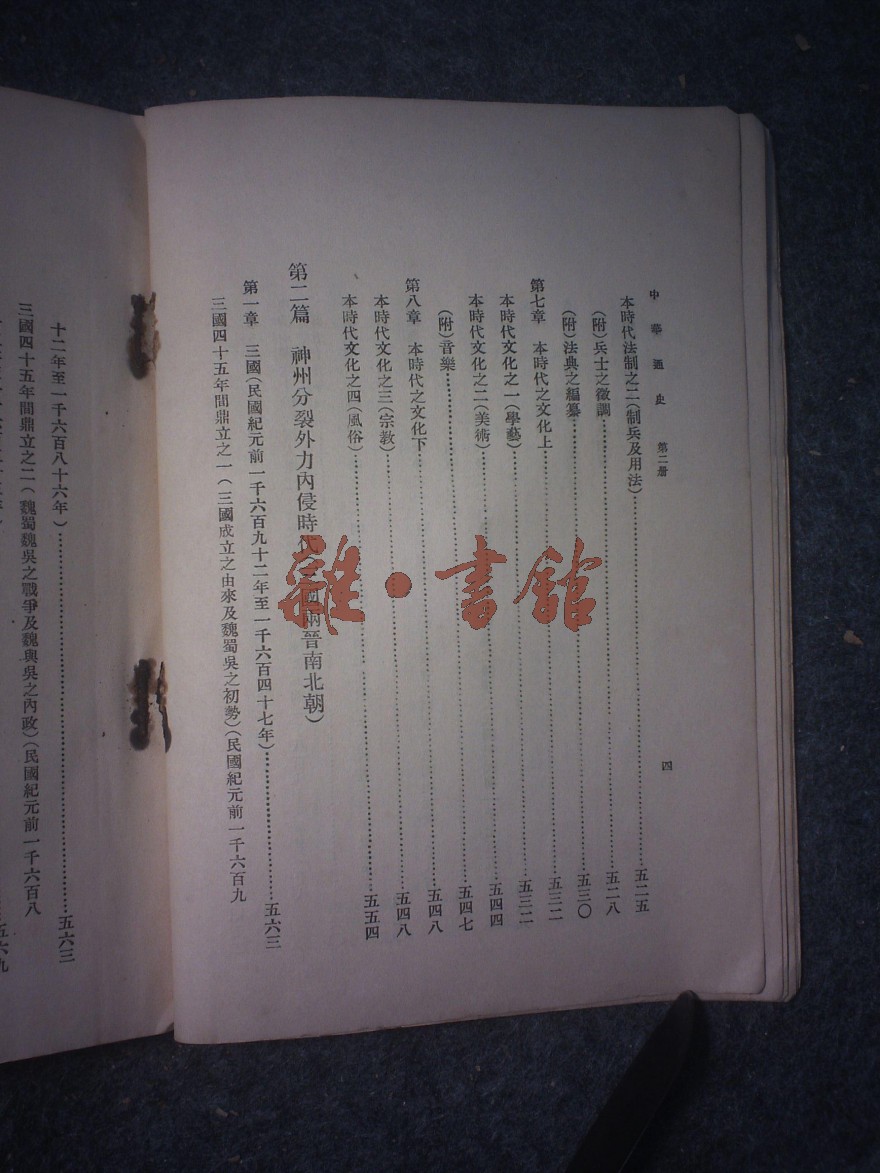 中華通史 第二册 四
本時代法制之二(制兵及用法)……五二五
(附)兵士之徵調……五二八
(附)法典之編纂……五三〇
第七章 本時代之文化上……五三二
本時代文化之一(學藝)……五三二
本時代文化之二(美術)……五四四
(附)音樂……五四七
第八章 本時代之文化下……五四八
本時代文化之三(宗教)……五四八
本時代文化之四(風俗)……五五四
第二篇 神州分裂外力內侵時代 國兩晉南北朝)
第一章 三國(民國紀元前一千六百九十二年至一千六百四十七年)……五六三
三國四十五年間鼎立之一(三國成立之由來及魏蜀吳之初勢)(民國紀元前一千六百九
十二年至一千六百八十六年)……五六三
三國四十五年間鼎立之二(魏蜀魏吳之戰爭及魏與吳之內政)(民國紀元前一千六百八
五六九
雜·書館